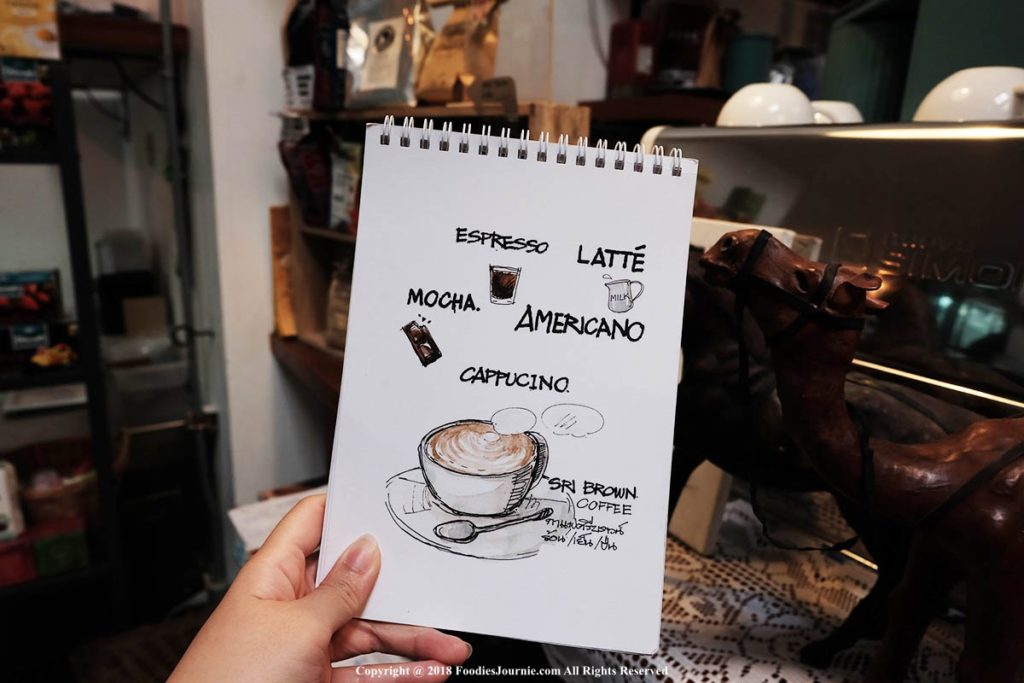 ESPRESSO
LATTÉ
MILK
MOCHA.
AMERICANO
CAPPUCINO.
SRI BROWN.
COFFEE
กาแฟศรีบราวน์
ร้อน/เย็น/ปั่น
Copyright @ 2018 FoodiesJournie.com All Rights Reserved